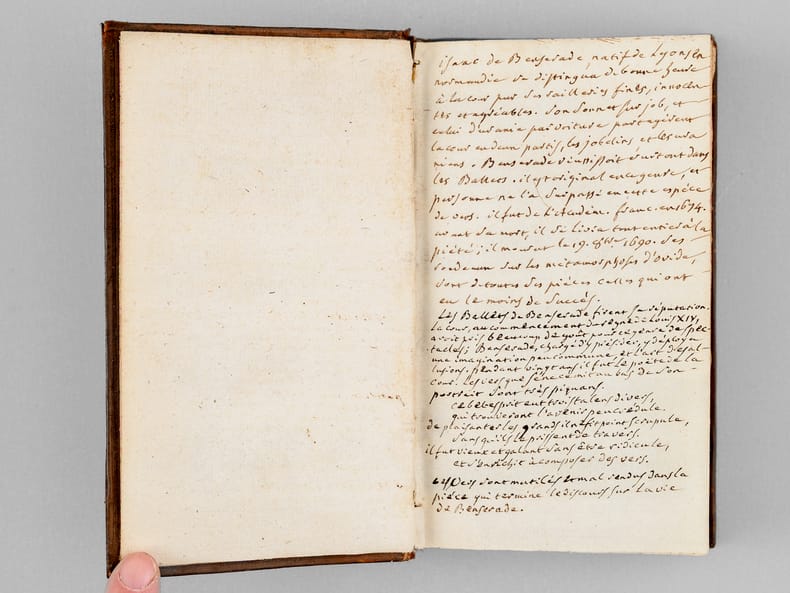 isaac de Benserade, natif de Lyons en
normandie se distingua de bonne heure
à la cour par ses railleries fines, innocen-
tes et agréables. Son Sonnet sur job, et
celui d'uranie par voiture partagerent
la cour en deux partis, les jobelins et les ura
niens. Benserade réussissoit surtout dans
les Ballets. il est original en ce genre, et
personne ne l'a surpassé en cette espéce
de vers. il fut de l'Academ. franc. en 1674.
avant sa mort, il se livra tout entier à la
piété; il mourut le 19. 8bre 1690. Ses
rondeaux sur les métamorphoses d'ovide,
sont de toutes ses piéces celles qui ont
eu le moins de succés.
Les Ballets de Benserade firent sa réputation.
La cour, au commencement du regne de Louis XIV,
avoit pris beaucoup de gout pour ce genre de spec-
tacles; Benserade, chargé d'y présider, y déploya
une imagination peu commune, et l'art des al-
lusions. pendant vingt ans il fut le poéte de la
cour. les vers que Sénecé mit au bas de son
portrait sont très piquans.
ce bel esprit eut trois talens divers,
qui trouveront l'avenir peu crédule.
de plaisanter les grands il ne fit point scrupule,
sans qu'ils le prissent de travers.
il fut vieux et galant sans être ridicule,
et s'enrichit à composer des vers.
ces vers sont mutilés et mal rendus dans la
piéce qui termine le discours sur la vie
de Benserade.